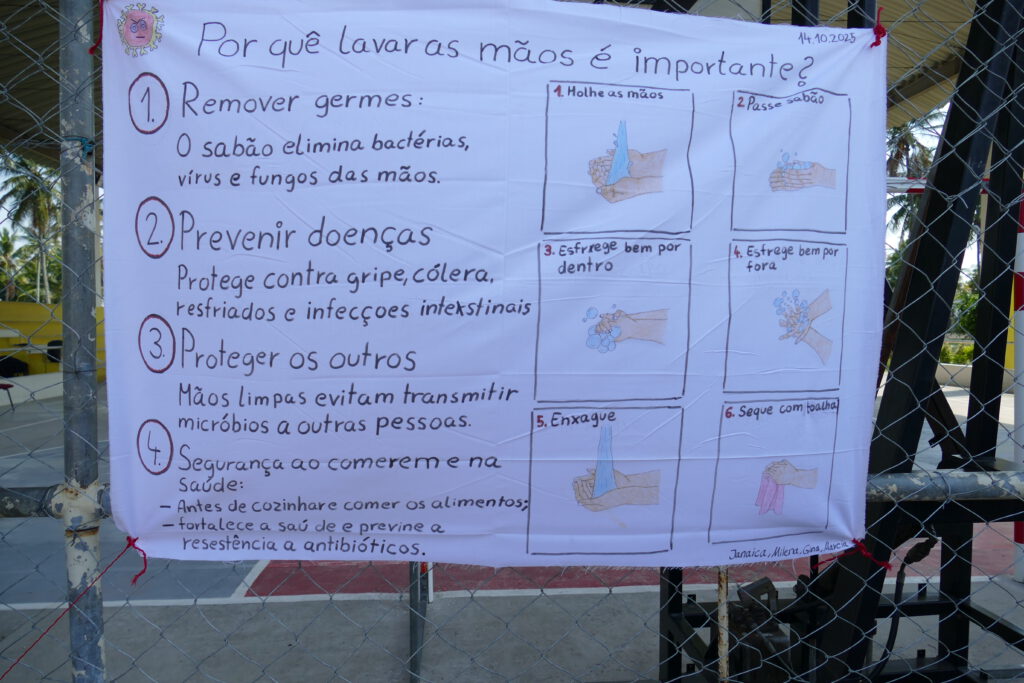 Por quê lavar as mãos é importante?
14.10.2025
1. Remover germes:
O sabão elimina bactérias,
vírus e fungos das mãos.
2. Prevenir doenças
Protege contra gripe, cólera,
resfriados e infecçoes intekstinais
3. Proteger os outros
Mãos limpas evitam transmitir
micróbios a outras pessoas.
4. Segurança ao comerem e na
Saúde:
- Antes de cozinhar e comer os alimentos;
- fortalece a saúde e previne a
resestência a antibióticos.
1. Molhe as mãos
2. Passe sabão
3. Esfrege bem por
dentro
4. Esfrege bem por
fora
5. Enxague
6. Seque com toalha
Janaica, Milena, Gina, Marcia